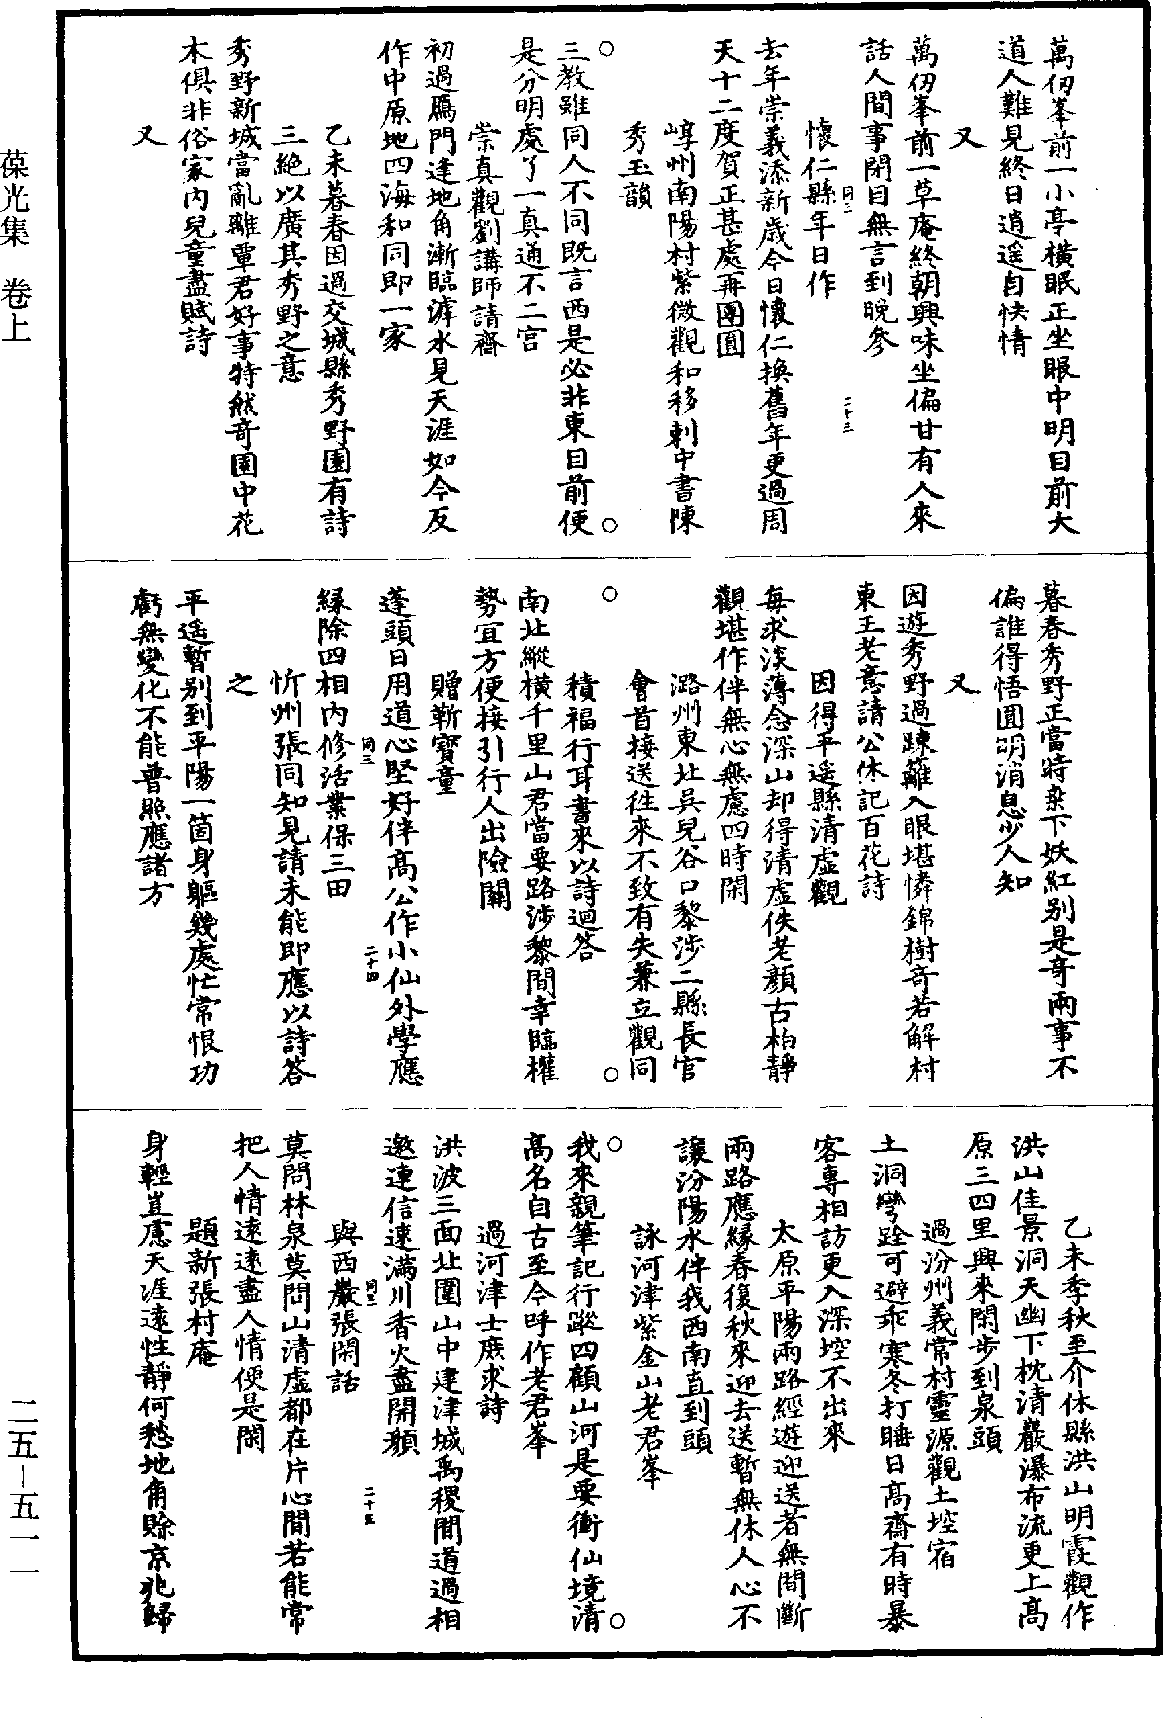 萬仞峯前一小亭橫眠正坐眼中明目前大
道人難見終日逍遥自快情
又
萬仞峯前一草庵終朝興味坐偏甘有人來
話人間事閉目無言到晚参
懷仁縣年日作
同二
二十三
去年崇義添新歲今日懷仁換舊年更過周
天十二度賀正甚處再團圓
崞州南陽村紫微觀和移剌中書陳
秀玉韻
三教雖同人不同既言西是必非東目前便
是分明處了一真通不二宫
崇真觀劉講師請齋
初過鴈門逢地角漸臨滹水見天涯如今反
作中原地四海和同即一家
乙未暮春因過交城縣秀野園有詩
三絶以廣其秀野之意
秀野新城當亂離覃君好事特然竒園中花
木俱非俗家内兒童盡賦詩
又
暮春秀野正當時桒下妖紅别是竒兩事不
偏誰得悟圓明消息少人知
又
因遊秀野過踈籬入眼堪憐錦樹竒若解村
東王老意請公休記百花詩
因得平遥縣清虚觀
每求淡薄念深山却得清虚佚老顔古柏靜
觀堪作伴無心無慮四時閑
潞州東北吳兒谷口黎涉二縣長官
會首接送徃來不致有失兼立觀同
積福行耳書來以詩迴答
南北縱橫千里山君當要路涉黎間幸臨權
勢宜方便接引行人出險關
贈靳寶童
蓬頭日用道心堅好伴高公作小仙外學應
緣除四相内修活業保三田
同三
二十四
忻州張同知見請未能即應以詩答
之
平遥暫别到平陽一箇身軀幾處忙常恨功
虧無變化不能普照應諸方
乙未季秋至介休縣洪山明霞觀作
洪山佳景洞天幽下枕清巖瀑布流更上高
原三四里興來閑步到泉頭
過汾州義常村靈源觀土埪宿
土洞彎跧可避乖寒冬打睡日高齋有時暴
客專相訪更入深埪不出來
太原平陽兩路經遊迎送者無間斷
兩路應緣春復秋來迎去送暫無休人心不
讓汾陽水伴我西南直到頭
詠河津紫金山老君峯
我來親筆記行蹤四顧山河是要衝仙境清
高名自古至今呼作老君峯
過河津士庶求詩
洪波三面北圍山中建津城禹稷間道過相
邀連信速滿川香火盡開顔
與西巖張閑話
同三
二十五
莫問林泉莫問山清虚都在片心間若能常
把人情遠遠盡人情便是閑
題新張村庵
身輕豈慮天涯遠性靜何愁地角賒京兆歸
葆光集　卷上
二五―五一一